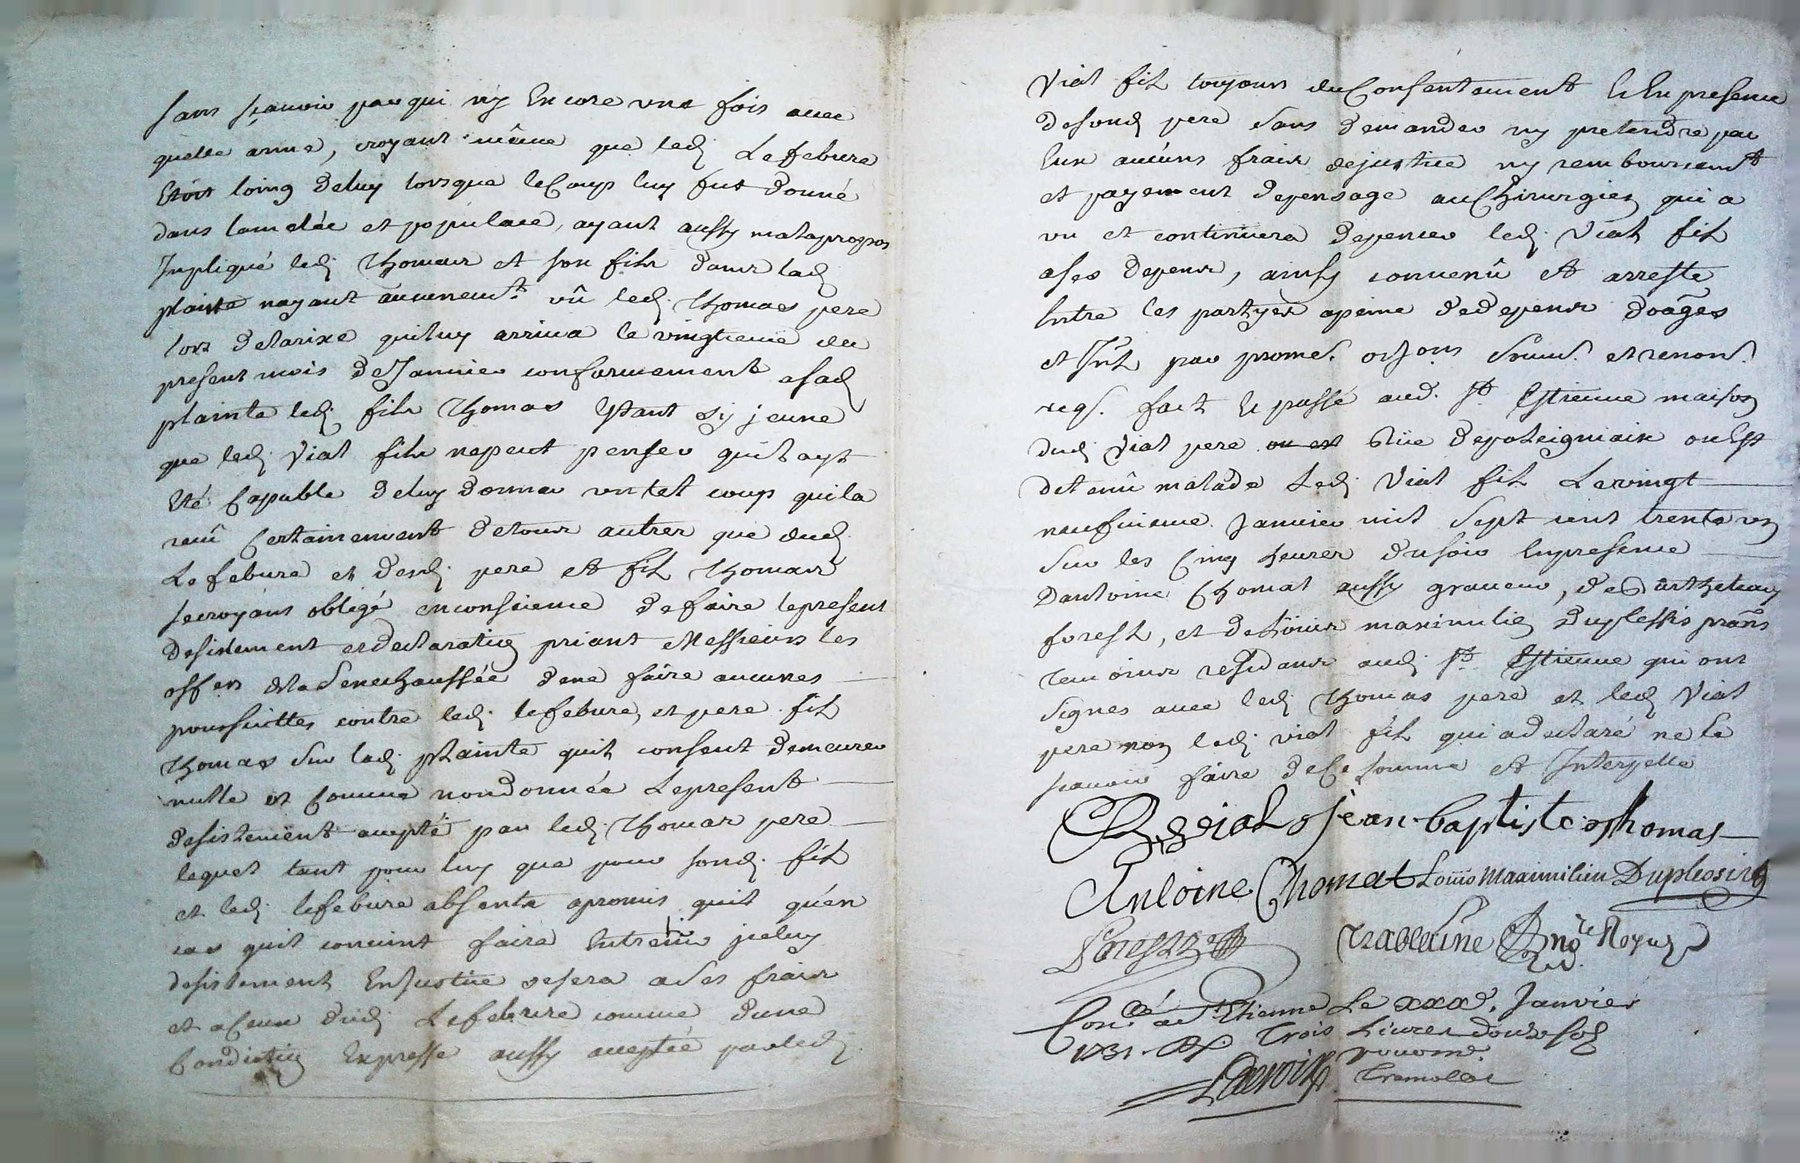 sans sçauoir par qui ny Encore une fois auec
quelle arme, croyant même que led. Lefebure
Etoit loing deluy lorsque leCoup luy fut donné
dans lamelée et populace, ayant aussy malapropos
Impliqué led. Thomas et son fils dans lad.
plainte nayant aucunemt. vû led. Thomas pere
lors delarixe quiluy arriua le vingtieme du
present mois deJanuier conformement asad.
plainte led. fils Thomas Etant sy jeune
que led. Vial fils nepeut penser quil ayt
Eté Capable deluy donner untel coup quila
receû Certainement detous autres que dud.
Lefebure et desd. pere et fils Thomas
secroyant obligé enconscience defaire lepresent
desistement et declaration priant Messieurs les
offers delaSenechaussée dene faire aucunes
poursuittes contre led. lefebure, et pere fils
Thomas sur lad. plainte quil consent demeurer
nulle et Comme nondonnée Lepresent
desistement accepté par led. Thomas pere
lequel tant pour luy que pour sond. fils
et led. lefebure absents apromis quil quén
cas quil conuint faire Entrer jceluy
desistement EnJustice cesera ases frais
et aCeux dud. Lefebure comme dune
Condition Expresse aussy acceptée parled.
Vial fils toujours duConsentement Et En presence
desond. pere sans demander ny pretendre par
Eux aucuns frais dejustice ny remboursemt
et payement depensage auChirurgien qui a
vu et continuera depenser led. Vial fils
ases depens, ainsy conuenû et arresté
Entre les partyes apeine dedepens doages
et Int par promes. oblons soums. et renons.
reqs. fait Et passé aud. St. Estienne maison
dud. Vial pere rüe depoleigniais ou Est
detenû malade led. Vial fils Levingt
neufuieme Januier mil sept cent trente un
sur les Cinq heures dusoir Enpresence
Dantoine Chomat aussy graueur,
forest, et deLouis maximilien Duplessis prans
temoins residans aud. St. Estienne qui ont
signes auec led. Thomas pere et led. Vial
pere non led. vial fils qui adeclaré ne le
sçauoir faire deCe sommé et Interpellé
Vial Jean baptiste Thomas
Antoine Chomat Louis Maximilien Duplessis
nore Royal
Con. a St Etienne Le xxxe. Januier
1731. Trois Liures douze sols
Lacroix Tramollet